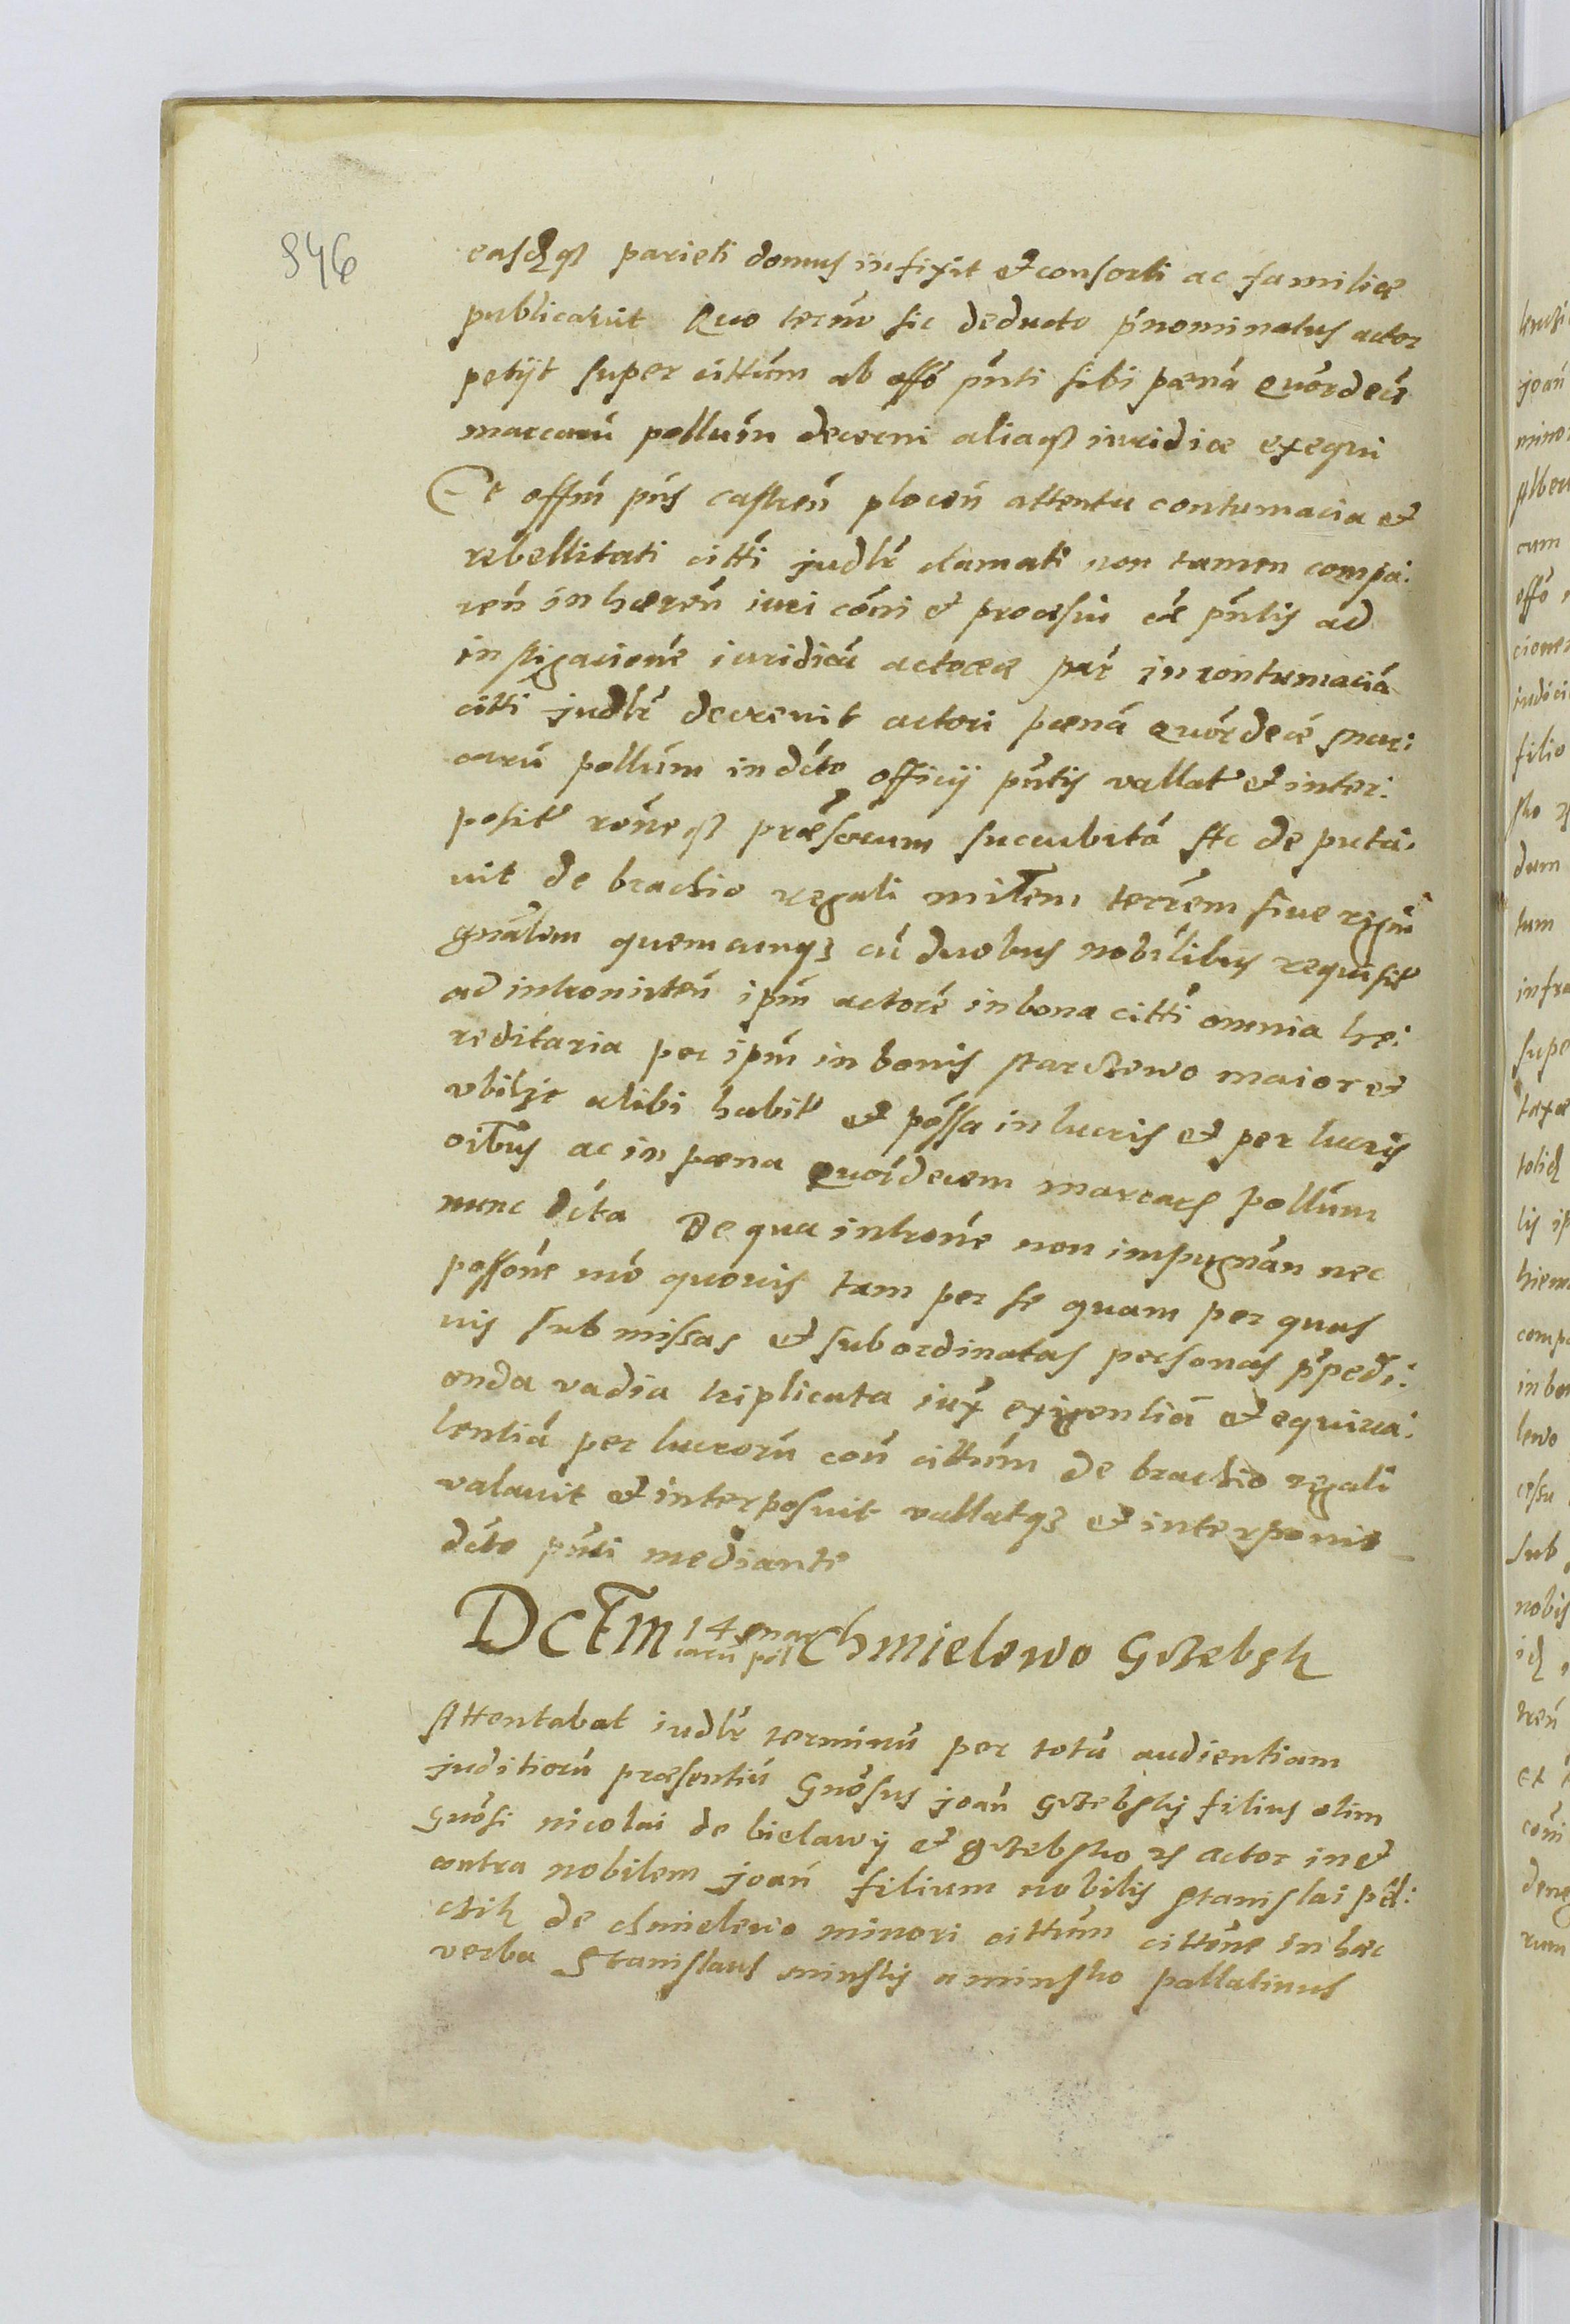 946
easdqȝ parieti domus infixit et consorti ac familiæ
publicavit Quo termo sic deducto pnominatus actor
petyt super cittum ab offo pnti sibi pænā quordecē
marcarū pollum decerni aliaqȝ iuridice exequi
Et offm pns castren plocen attentu contumacia et
rebellitati citti judlr clamati non tamen compa:
ren inhæren iuri coni et processui cæ pntis ad
instigacione iuridicā actoreæ par in contumaciā
citti judlr decrevit actori pænā quordecē mar:
carū pollum in dcto officij pntis vallat et inter:
posit rōneqȝ præscrum succubitā Ac deputa:
vit de brachio regali militem terrem sive regni
gnalem quemcunqȝ cū duobus nobilibus requisit
ad intromitten ipm actorē in bona citti omnia hæ:
reditaria per ipm in bonis starczewo maior et
ubilȝt alibi habit et possa in lucris et per lucris
oibus ac in pæna quordecem marcars pollum
nunc dcta De qua introne non impugnan nec
possone mō quovis tam per se quam per quas
vis submissas et subordinatas personas ppedi:
enda vadia triplicata iux exigentiā et equiva:
lentiā per lucrorū con cittum de brachio regali
valavit et interposuit vallatqȝ et interponit
dcto pnti mediante
Dctm 14 mar
carū pol Chmielewo Grzebsk
Attentabat iudlr terminū per totū audientiam
juditiorū præsentiū Gnosus joan grzebskij filius olim
Gnosi nicolai de bielawij et grzebsko rs actor in et
contra nobilem joan filium nobilis stanislai pel:
czik de chmielewo minori cittum cittone in hæc
verba Stanislaus minskij a minsko pallatinus